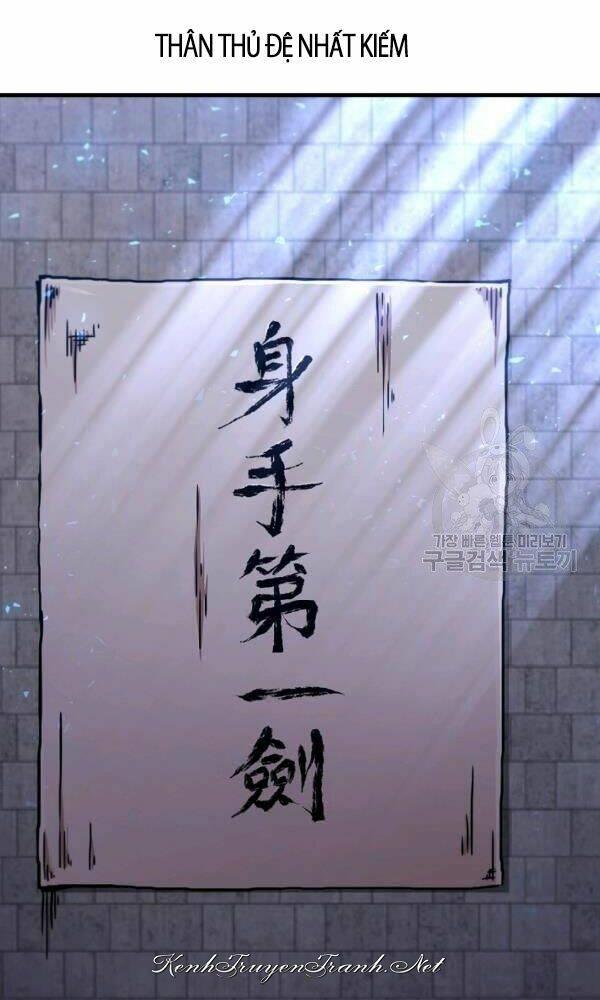 THÂN THỦ ĐỆ NHẤT KIẾM
身手第一劍
가장 빠른 웹툰 미리보기
구글검색 뉴토끼
KenhTruyenTranh.Net